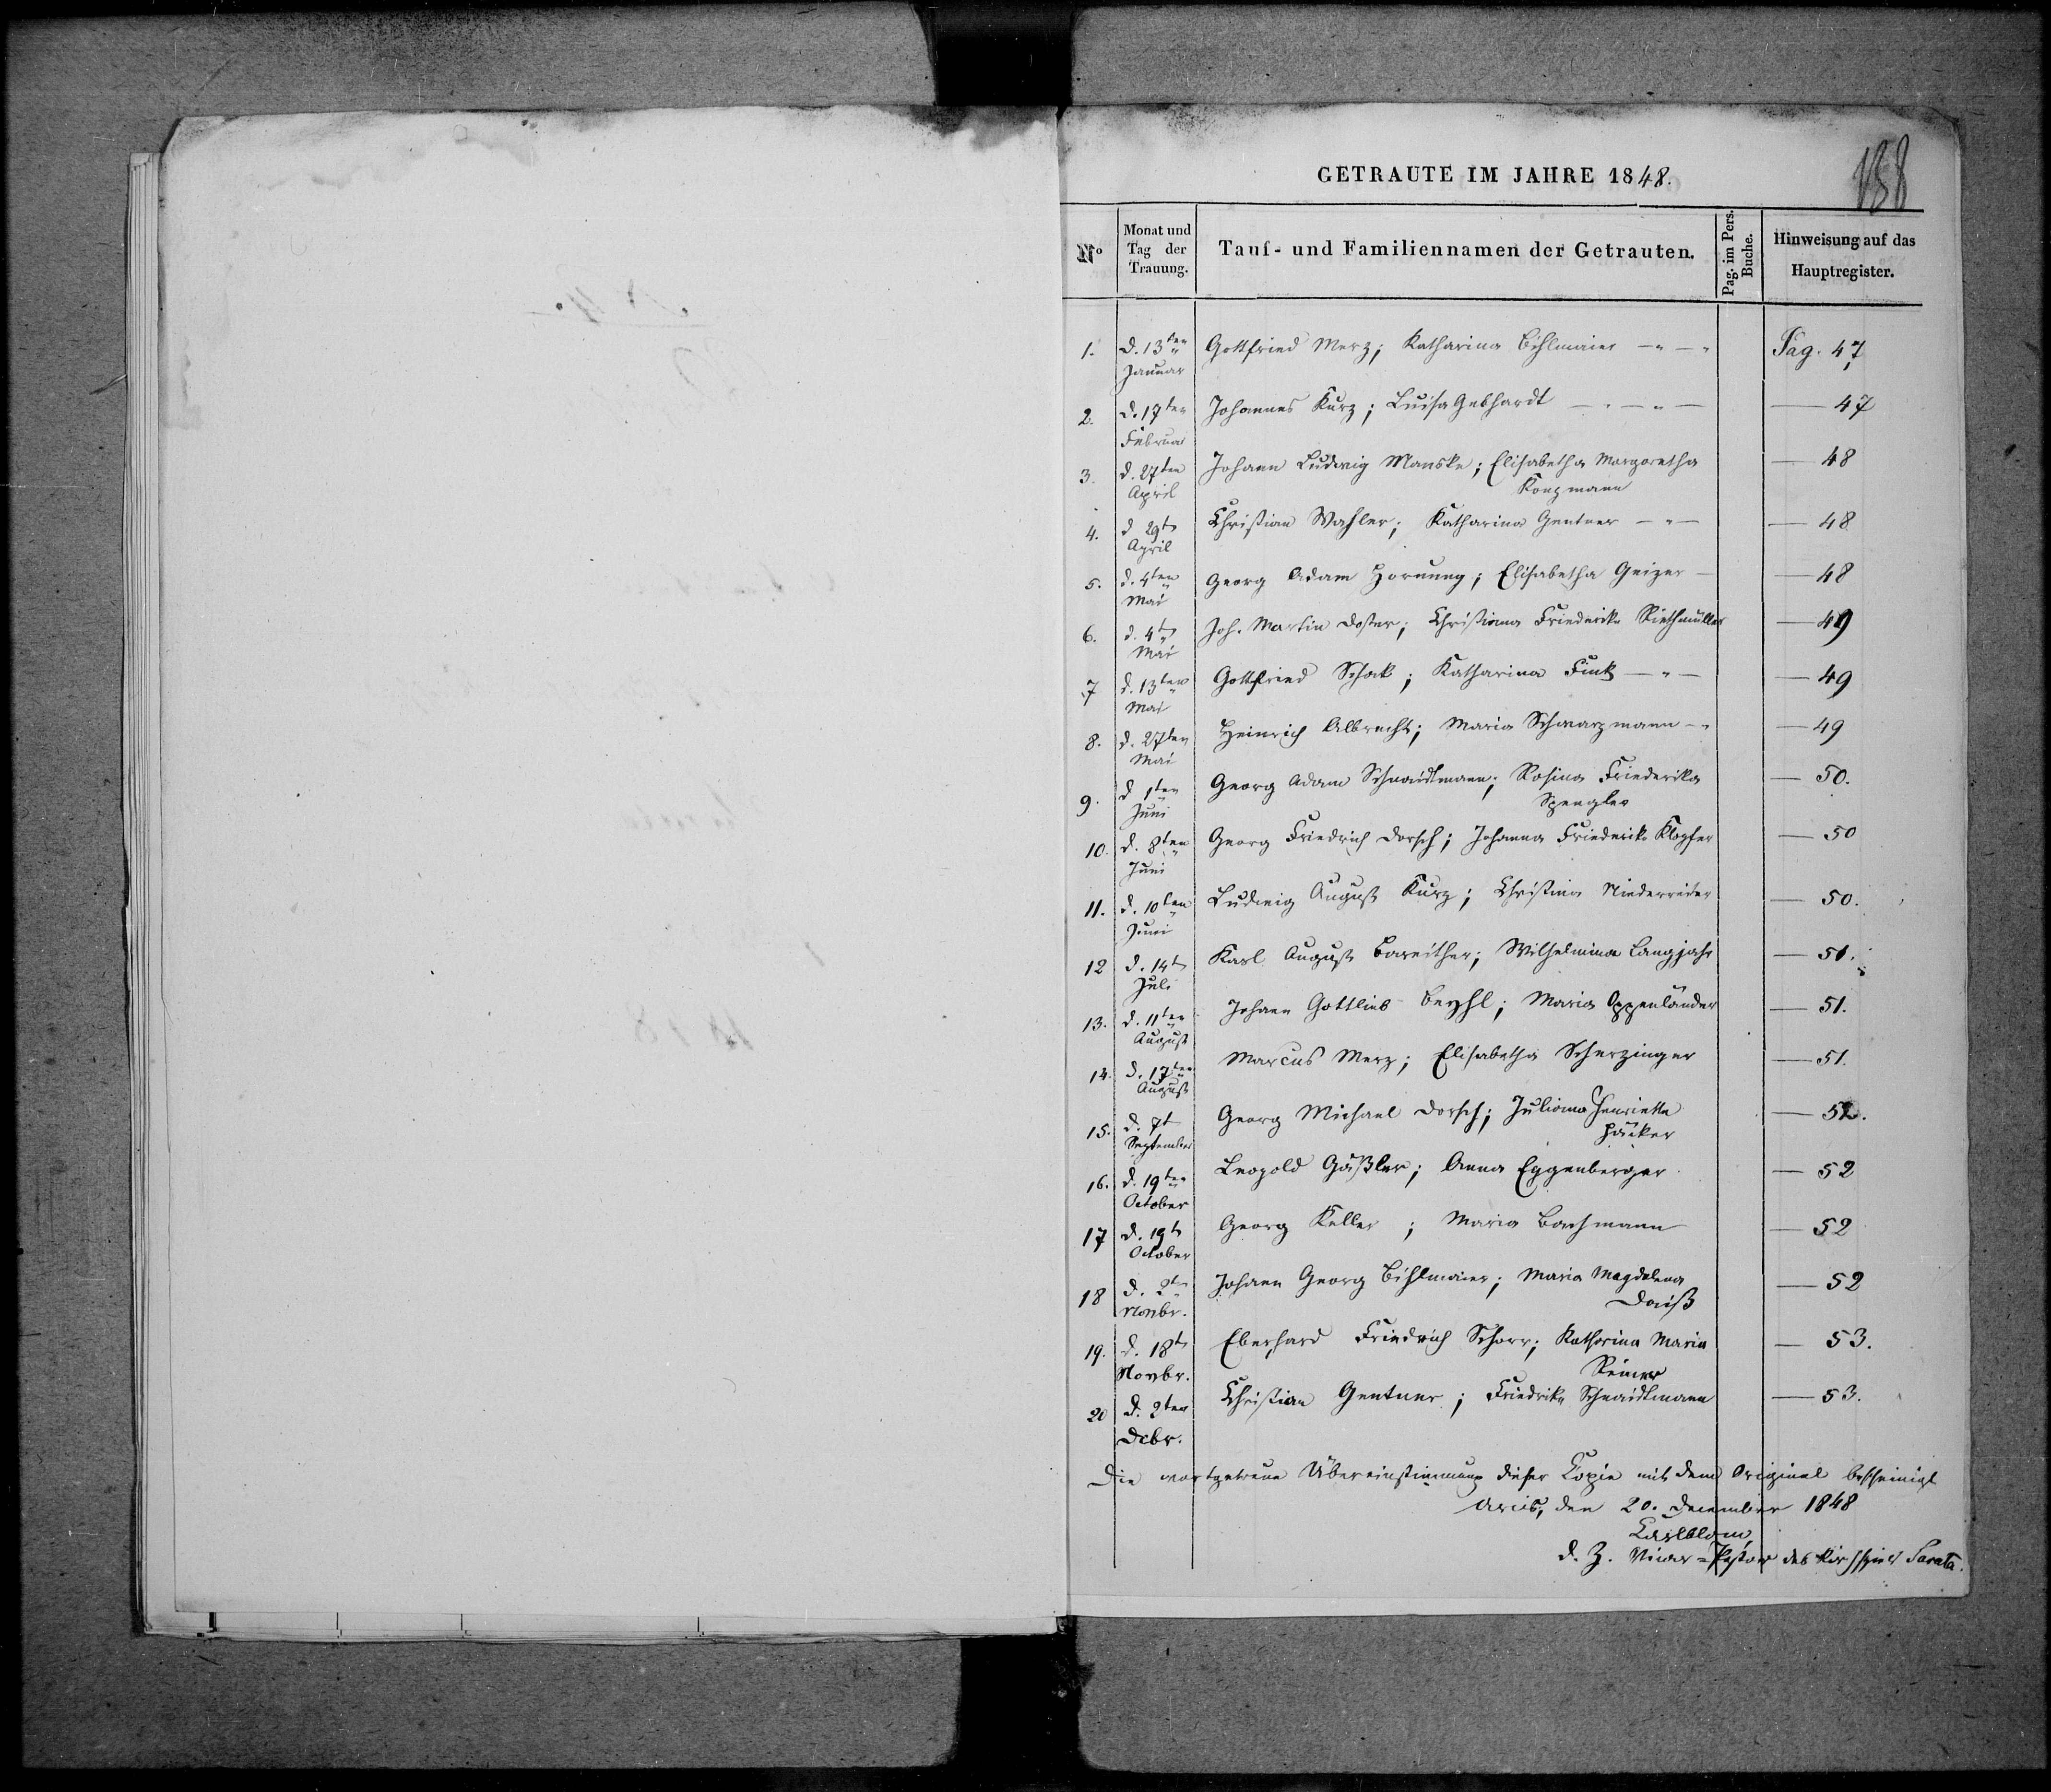 GETRAUTE IM JAHRE 1848.
138
No Monat und Tag der Trauung. Tauf- und Familiennamen der Getrauten. Pag. im Pers. Buche. Hinweisung auf das Hauptregister.
1. d. 13ten Gottfried Merz; Katharina Bihlmaier Pag. 47
Januar
2. d. 17ten Johannes Kurz; Luisa Gebhardt — 47
Februar
3. d. 27ten Johann Ludwig Manske; Elisabetha Margaretha — 48
April Konzmann
4. d 29t Christian Wahler; Katharina Gentner — 48
April
5. d. 4ten Georg Adam Hornung; Elisabetha Geizer — 48
Mai
6. d. 4t Joh. Martin Doster; Christiana Friederike Riethmüller — 49
Mai
7 d. 13ten Gottfried Schock; Katharina Fink — 49
Mai
8. d. 27ten Heinrich Albrecht; Maria Schwarzmann — 49
Mai
9. d 1ten Georg Adam Schnaidtmann; Rosina Friederika — 50.
Juni Spengler
10. d. 8ten Georg Friedrich Dorsch; Johanna Friederike Klopfer — 50
Juni
11. d. 10ten Ludwig August Kurz; Christina Niederreiter — 50.
Juni
12 d. 14t Karl August Bareither; Wilhelmina Langjahr — 51.
Juli
13. d. 11ten Johann Gottlieb Beyhl; Maria Oppenländer — 51.
August
14. d. 17ten Marcus Merz; Elisabetha Scherzinger — 51.
August
15. d. 7t Georg Michael Dorsch; Juliana Henriette — 52.
September Häcker
16. d. 19ten Leopold Gäßler; Anna Eggenberger — 52
October
17 d. 19t Georg Keller; Maria Bachmann — 52
October
18 d. 2t Johann Georg Bihlmaier; Maria Magdalena — 52
Novbr. Dauß
19. d. 18t Eberhard Friedrich Schorr; Katharina Maria — 53.
Novbr. Reiner
20 d. 2ten Christian Gentner; Friedrike Schnaidtmann — 53.
Dcbr.
Die wortgetreue Übereinstimmung dieser Copie mit dem Original bescheinigt
Arcis, den 20. December 1848
Carlblom
d. Z. Vicar-Pastor des Kirchspiels Sarata.